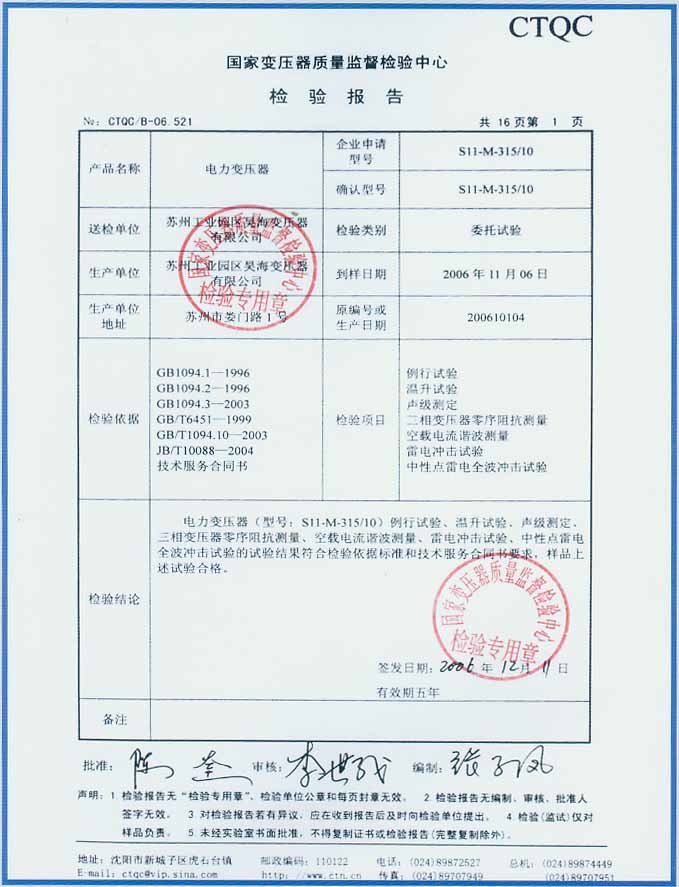 CTQC
国家变压器质量监督检验中心
检 验 报 告
№: CTQC/B-06.521
共 16 页第 1 页
产品名称
电力变压器
企业申请
型号
S11-M-315/10
确认型号
S11-M-315/10
送检单位
苏州工业园区昊海变压器
有限公司
检验类别
委托试验
生产单位
苏州工业园区昊海变压器
有限公司
到样日期
2006 年 11 月 06 日
生产单位
地址
苏州市娄门路 1 号
原编号或
生产日期
200610104
国家变压器质量监督检验中心
检验专用章
检验依据
GB1094.1—1996
GB1094.2—1996
GB1094.3—2003
GB/T6451—1999
GB/T1094.10—2003
JB/T10088—2004
技术服务合同书
检验项目
例行试验
温升试验
声级测定
三相变压器零序阻抗测量
空载电流谐波测量
雷电冲击试验
中性点雷电全波冲击试验
检验结论
电力变压器（型号：S11-M-315/10）例行试验、温升试验、声级测定、
三相变压器零序阻抗测量、空载电流谐波测量、雷电冲击试验、中性点雷电
全波冲击试验的试验结果符合检验依据标准和技术服务合同书要求，样品上
述试验合格。
国家变压器质量监督检验中心
检验专用章
签发日期：2006 年 12 月 11 日
有效期五年
备注
批准： 审核： 编制：
声明：1 检验报告无“检验专用章”、检验单位公章和每页封章无效。 2.检验报告无编制、审核、批准人
签字无效。 3.对检验报告若有异议，应在收到报告后及时向检验单位提出。 4.检验(监试)仅对
样品负责。 5.未经实验室书面批准，不得复制证书或检验报告(完整复制除外)。
地址：沈阳市新城子区虎石台镇 邮政编码：110122 电话：(024)89872527 总机：(024)89874449
E-mail：ctqc@vip.sina.com http：//www.ctn.cn 传真：(024)89707949 邮箱：(024)89707951